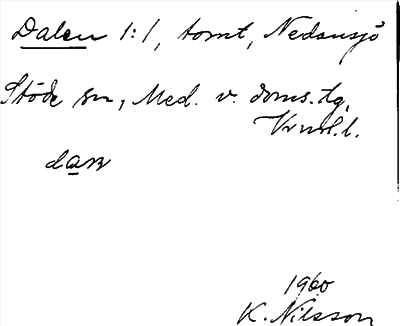 Dalen 1:1, tomt, Nedansjö
Stöde sn, Med. v. doms. tg,
Vrnl. l.
dan
1960
K. Nilsson